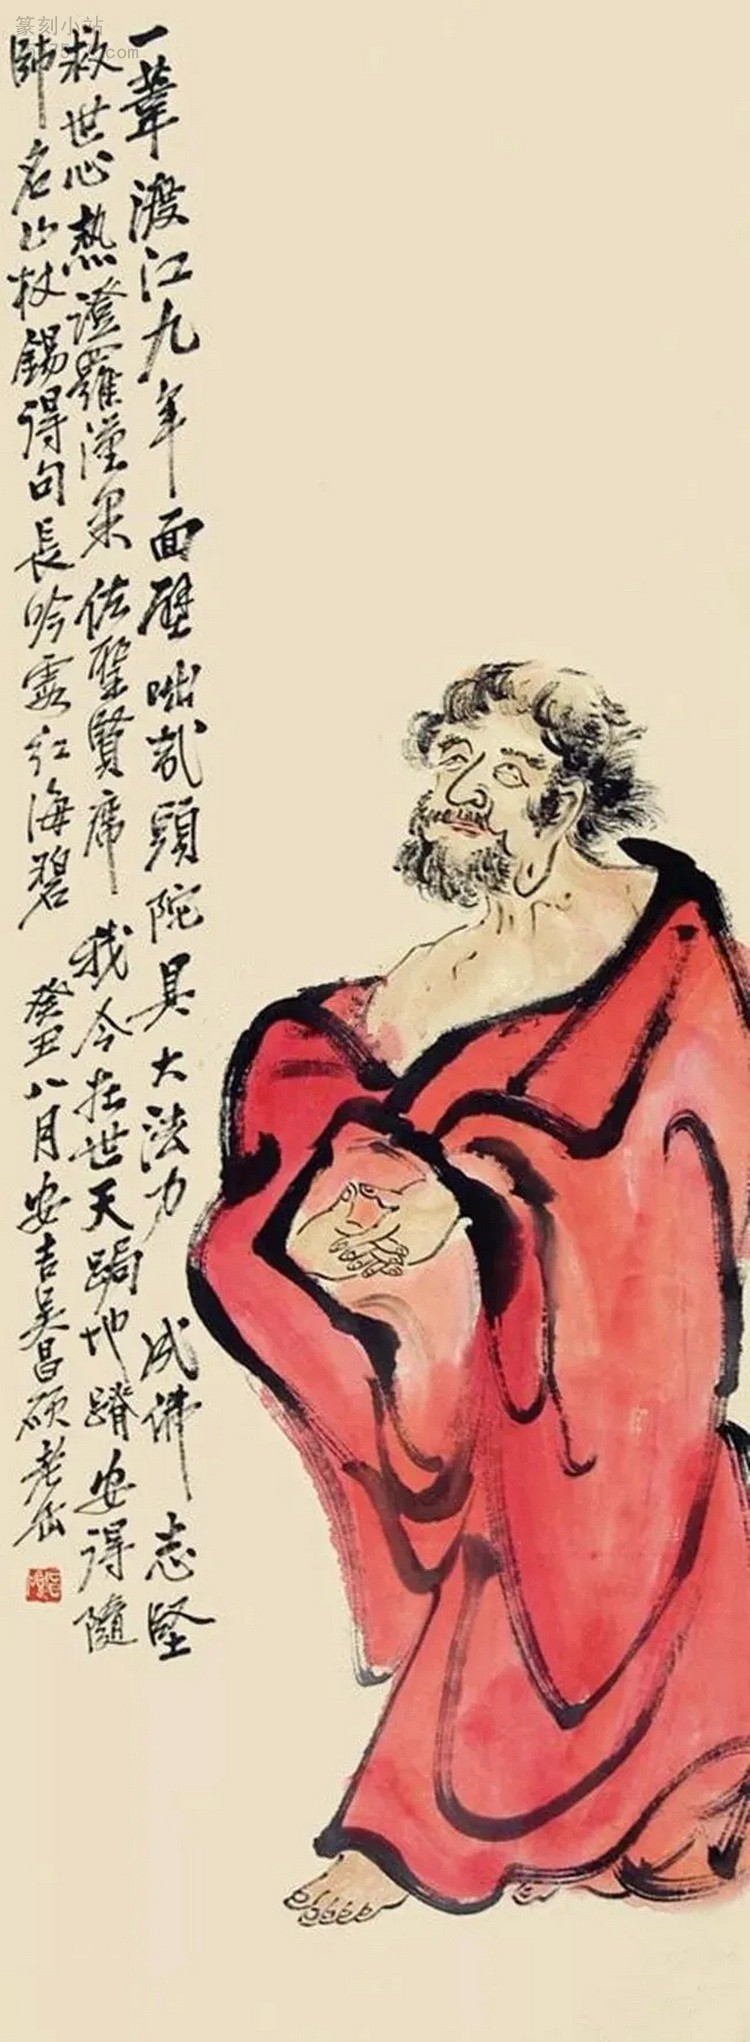 一葦渡江九年面壁咄哉頭陀具大法力 成佛志堅
救世心熱證羅漢果佐聖賢席 我今在世天跼地蹐安得隨
師名山杖錫得句長吟霞紅海碧
癸丑八月安吉吳昌碩老缶
篆刻小站